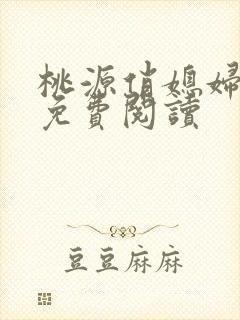 桃源俏媳婦
免費閱讀
豆豆麻麻